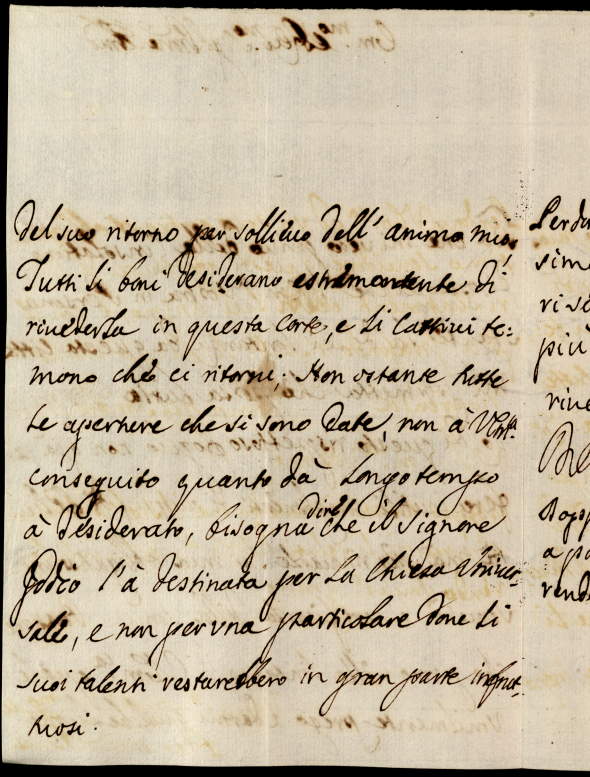 del suo ritorno per sollieuo dell' animo mio,
Tutti li boni desiderano estremamente di
riuederla in questa Corte, e li Cattiui te:
mono che ci ritorni; Non ostante tutte
le aperture che si sono date, non à
conseguito quanto dà longo tempo
à desiderato, bisogna dire che il Signore
l'à destinata per la Chiesa Vniuer-
sale, e non per vna particolare doue li
suoi talenti restarebbero in gran parte infrut-
tuosi.
più